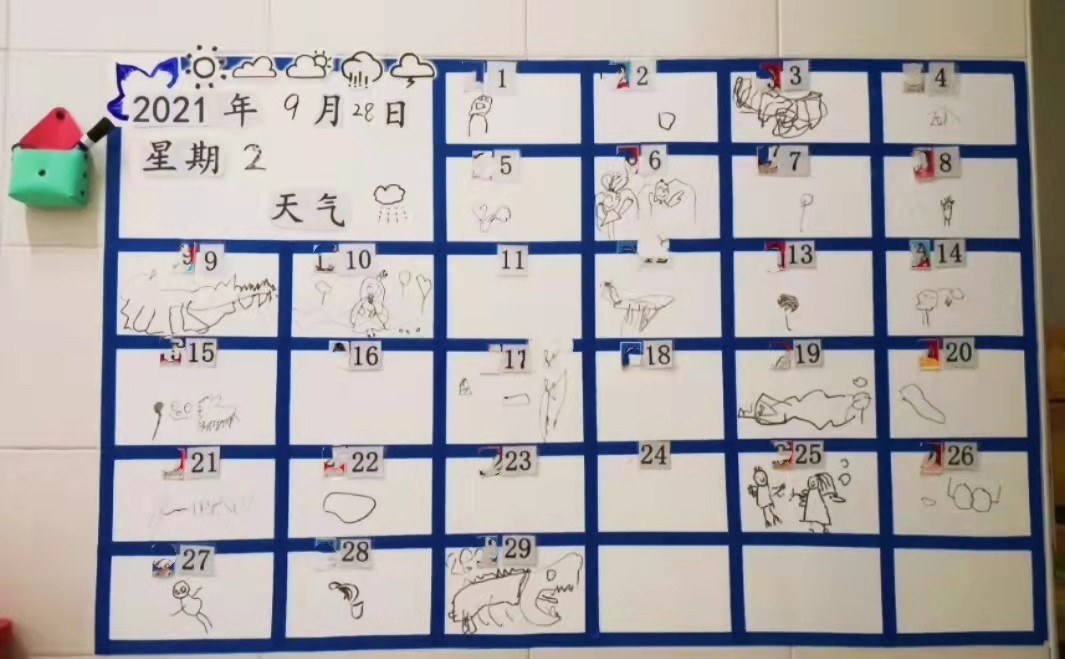 2021 年 9 月 28 日
星期 2
天气
1 2 3 4
5 6 7 8
9 10 11 13 14
15 16 17 18 19 20
21 22 23 24 25 26
27 28 29